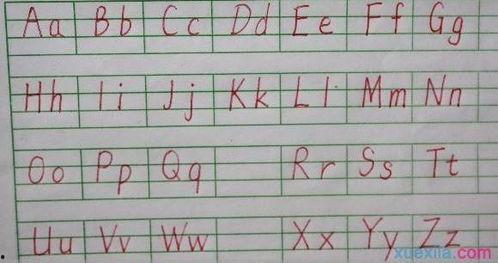 Aa Bb Cc Dd Ee Ff Gg
Hh Ii Jj Kk Ll Mm Nn
Oo Pp Qq Rr Ss Tt
Uu Vv Ww Xx Yy Zz
xuexila.com